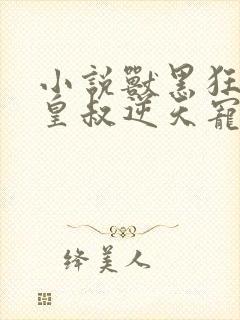 小説獸黑狂
皇叔逆天寵
绛美人